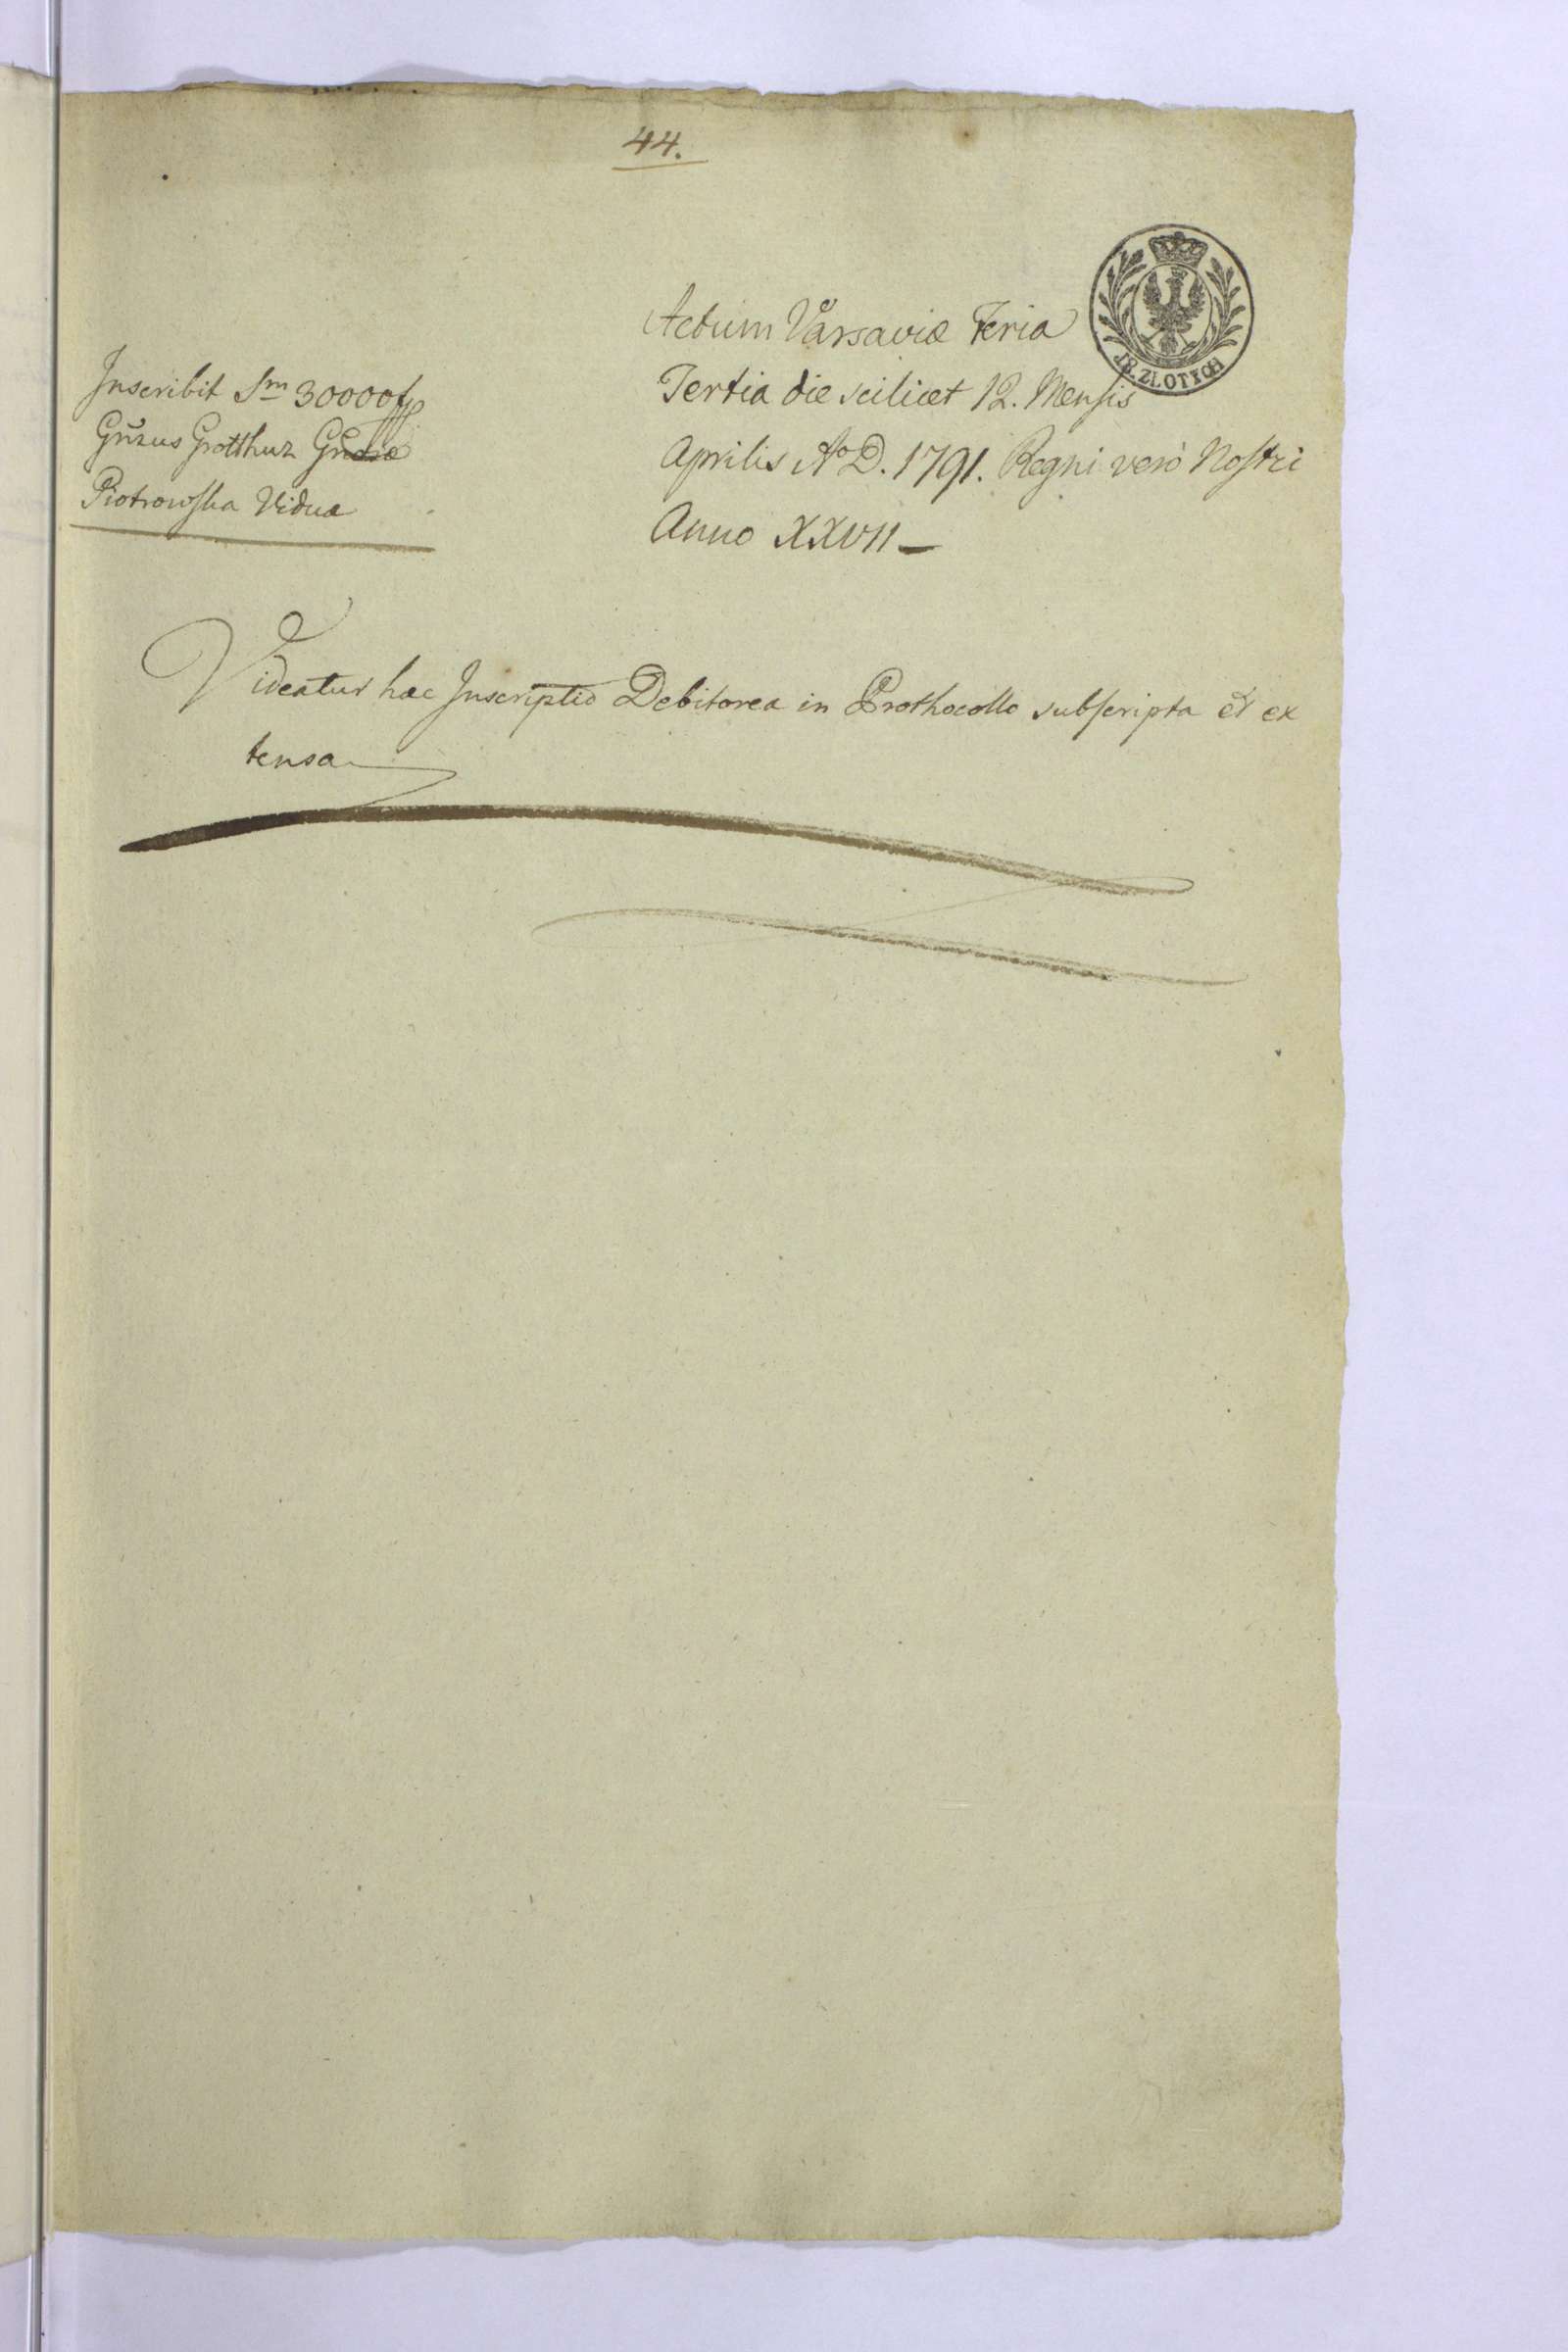 44.
Actum Varsaviæ Feria
Tertia die scilicet 12. Mensis
Aprilis Ao D. 1791. Regni verò Nostri
Anno XXVII
ZŁOTYCH
Inscribit Sm 30000
Gñsus Grotthuz
Piotrowska Vidua
Videatur hæc Inscriptio Debitorea in Prothocollo subscripta et ex
tensa